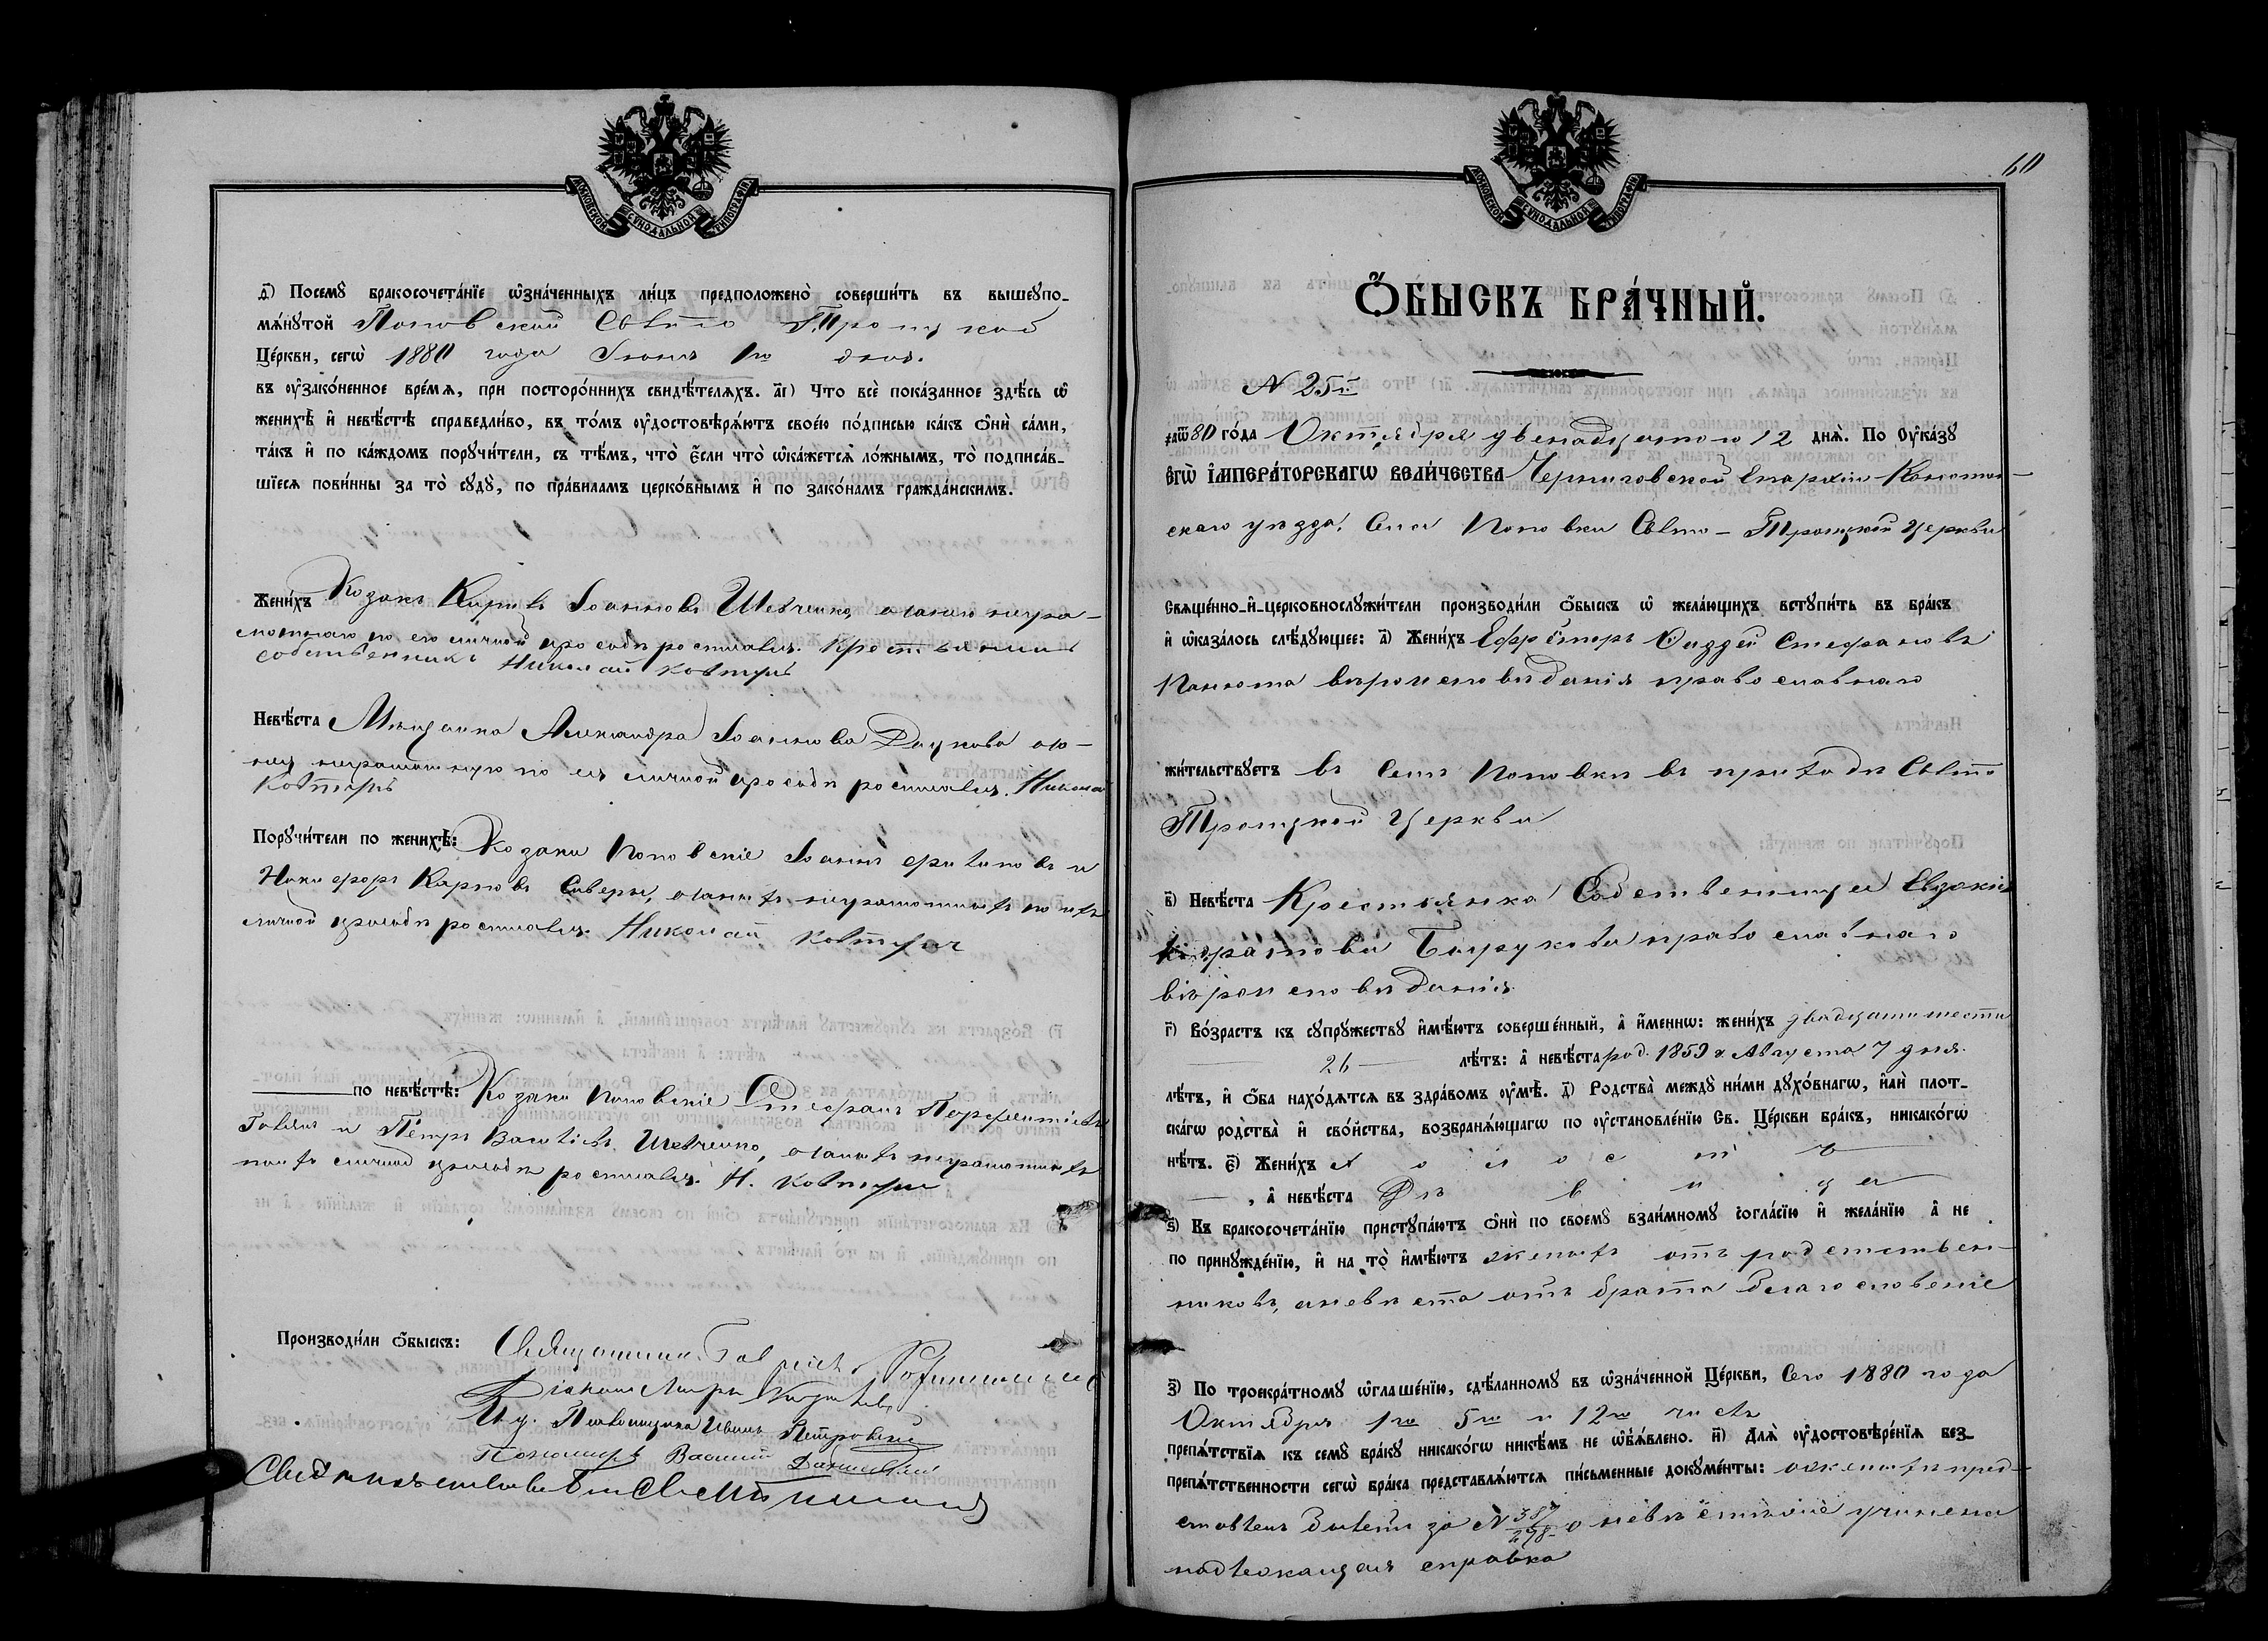 МОСКОВСКОЙ СѴНОДАЛЬНОЙ ТИПОГРАФІИ
Посемꙋ̀ бракосочета́нїе ѡ҆зна́ченныхъ ли́цъ предположено̀ соверши́ть въ вышеꙋпо-
мѧ́нꙋтой Поповской Свято Троицкой
Це́ркви, сегѡ̀ 1880 года Іюня 1го дня.
въ ᲂу҆зако́ненное вре́мѧ, при посторо́ннихъ свидѣ́телѧхъ. а҃і) Что всѐ пока́занное здѣ́сь ѡ҆
женихѣ̀ и҆ невѣ́стѣ справедли́во, въ то́мъ ᲂу҆достовѣрѧ́ютъ свое́ю по́дписью ка́къ ѻ҆нѝ са́ми,
та́къ и҆ по ка́ждомъ порꙋчи́тели, съ тѣ́мъ, что̀ є҆́сли что̀ ѡ҆ка́жетсѧ ло́жнымъ, то̀ подписа́в-
шїесѧ пови́нны за то̀ сꙋдꙋ̀, по пра́виламъ церко́внымъ и҆ по зако́намъ гражда́нскимъ.
Жени́хъ Козакъ Іоанновъ Шевченко, а за него негра-
мотнаго по его личной просьбѣ росписался Крестьянинъ
собственникъ Николай Ковтунъ
Невѣ́ста Мѣщанка Александра Іоаннова а за
нею неграмотную по ея личной просьбѣ росписался Николай
Ковтунъ
Порꙋчи́тели по женихѣ̀: Козаки Поповскіе Іоаннъ и
Никифоръ Карповъ а за нихъ неграмотныхъ по ихъ
личной просьбѣ росписался Николай Ковтунъ
по невѣ́стѣ: Козаки Поповскіе Стефанъ
и Петръ Васильевъ Шевченко, а за нихъ неграмотныхъ
по ихъ личной просьбѣ росписался Н. Ковтунъ
Производи́ли ѻ҆́быскъ: Священникъ Гавріилъ
Діаконъ
И. д. Псаломщика Иванъ Петровскій
Пономарь Василій
60
МОСКОВСКОЙ СѴНОДАЛЬНОЙ ТИПОГРАФІИ
Ѻ҆́БЫСКЪ БРА́ЧНЫЙ.
N 25й
҂аѿ80 го́да Октября двенадцатого 12 днѧ̀. По Оу҆ка́зꙋ
Є҆гѡ̀ І҆мпера́торскагѡ Вели́чества Черниговской Епархіи Конотоп-
скаго уѣзда, Села Поповки Свято-Троицкой Церкви
Свѧще́нно-и҆-церковнослꙋжи́тели производи́ли ѻ҆́быскъ ѡ҆ жела́ющихъ встꙋпи́ть въ бра́къ
и҆ ѡ҆каза́лось слѣ́дꙋющее: а҃) Жени́хъ Ефрейторъ Стефановъ
вѣроисповѣданія православнаго
жи́тельствꙋетъ въ Селѣ Поповкѣ въ приходѣ Свято
Троицкой Церкви
в҃) Невѣ́ста Крестьянка Собственница Евдокія
православнаго
вѣроисповѣданія
г҃) Во́зрастъ къ сꙋпрꙋ́жествꙋ и҆мѣ́ютъ соверше́нный, а҆ и҆́менно: жени́хъ двадцатишести
26 лѣ́тъ: а҆ невѣ́ста род. 1859 г Августа 7 дня
лѣ́тъ, и҆ ѻ҆́ба нахо́дѧтсѧ въ здра́вомъ ᲂу҆мѣ̀. д҃) Родства̀ междꙋ̀ ни́ми дꙋхо́внагѡ, и҆лѝ плот-
ска́гѡ родства̀ и҆ сво́йства, возбранѧ́ющагѡ по ᲂу҆становле́нїю Св. Це́ркви бра́къ, никако́гѡ
нѣ́тъ. є҃) Жени́хъ холостъ
, а҆ невѣ́ста Дѣвица
ѕ҃) Къ бракосочета́нїю пристꙋпа́ютъ ѻ҆нѝ по своемꙋ̀ взаи́мномꙋ согла́сїю и҆ жела́нїю а҆ не
по принꙋжде́нїю, и҆ на то̀ и҆мѣ́ютъ женихъ отъ родственн-
никовъ, а невѣста отъ брата благословеніе
з҃) По троекра́тномꙋ ѡ҆глаше́нїю, сдѣ́ланномꙋ въ ѡ҆зна́ченной Це́ркви, Сего 1880 года
Октября 1го 5го и 12го чиселъ
препѧ́тствїѧ къ семꙋ̀ бра́кꙋ никако́гѡ никѣ́мъ не ѡ҆б̾ѧ́влено. и҃) Длѧ̀ ᲂу҆достовѣре́нїѧ без-
препѧ́тственности сегѡ̀ бра́ка представлѧ́ютсѧ пи́сьменные докꙋме́нты: о женихѣ пред-
ставленъ билетъ за N о невѣстѣ учинена
надлежащая справка